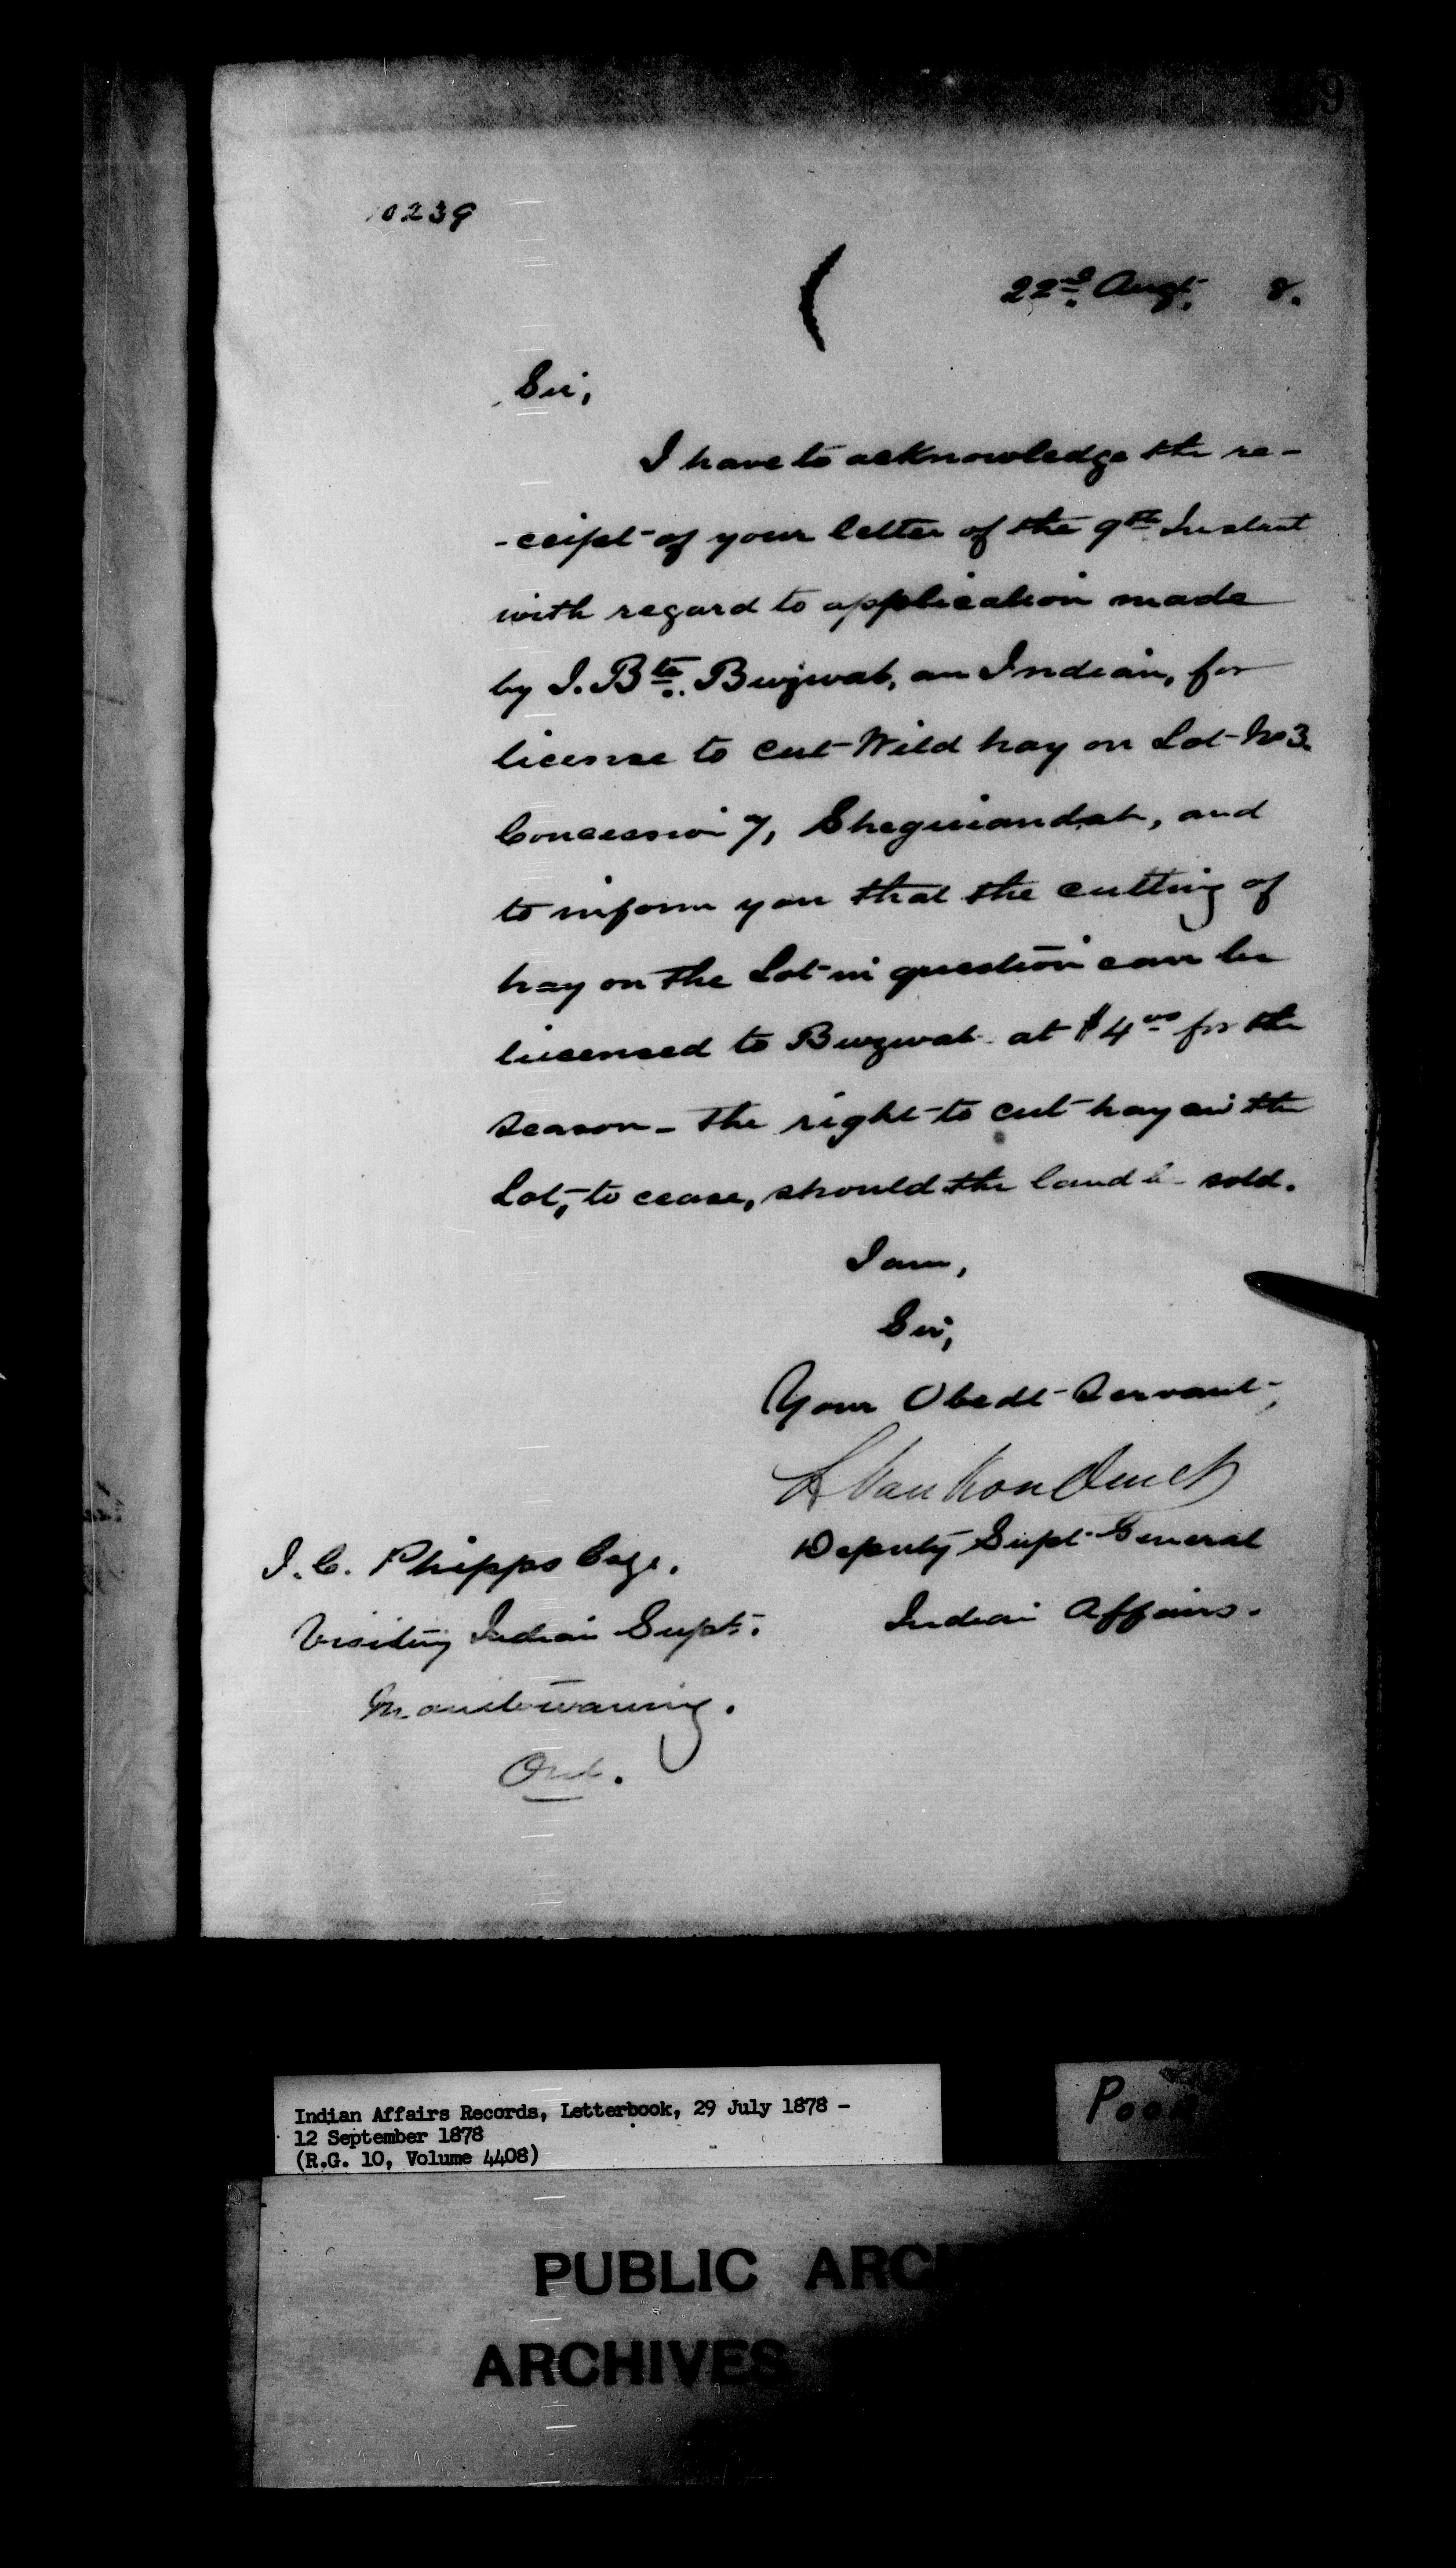 9
10239
22nd Augt. 8.
Sir,
I have to acknowledge the re-
-ceipt of your letter of the 9th Instant
with regard to application made
by J. Bte. Bwzwat, an Indian, for
license to cut Wild hay on Lot No 3.
Concession 7, Sheguiandah, and
to inform you that the cutting of
hay on the Lot in question can be
licensed to Bwzwat at $4.00 for the
season - the right to cut hay on the
Lot, to cease, should the land be sold.
I am,
Sir,
Your Obedt Servant,
L VanKoughnet
Deputy Supt General
Indian Affairs.
J. C. Phipps Esqr.
Visiting Indian Supt.
Manitowaning.
Ont.
Indian Affairs Records, Letterbook, 29 July 1878 -
12 September 1878
(R.G. 10, Volume 4408)
Poor
PUBLIC ARC
ARCHIVES